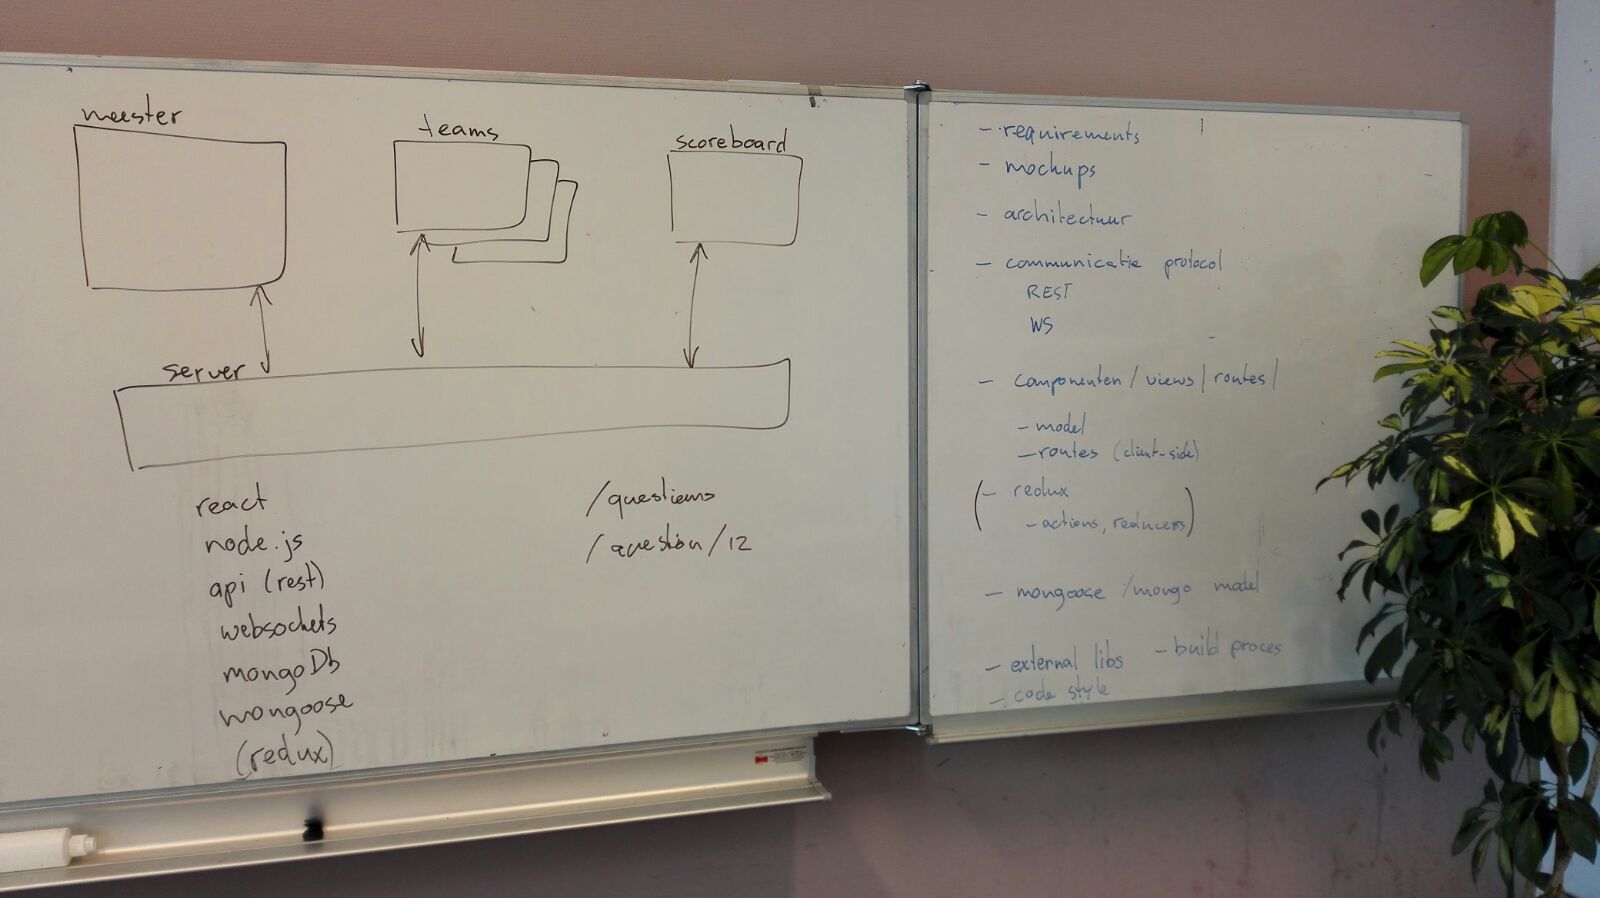 meester
teams
scoreboard
server
react
node.js
api (rest)
websockets
mongoDb
mongoose
(redux)
/questions
/question/12
- requirements
- mockups
- architectuur
- communicatie protocol
REST
WS
- componenten / views / routes /
- model
- routes (client-side)
(- redux
- actions, reducers)
- mongoose / mongo model
- external libs - build proces
- code style